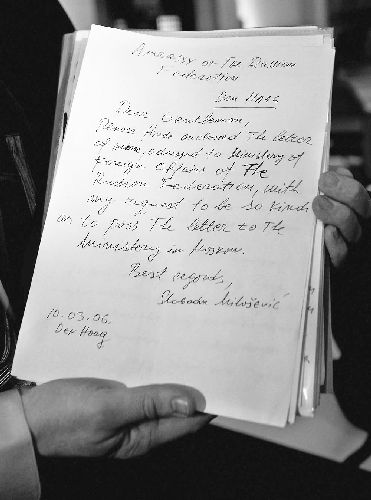 Embassy of The Russian
Federation
Den Haag
Dear Gentlemen,
Please find enclosed The letter
of mine, adressed to Ministry of
Foreign Affairs of The
Russian Federation, with
my request to be so kind
to pass The letter to The
Ministry in Moscow.
Best regards,
Slobodan Milošević
10.03.06.
Den Haag